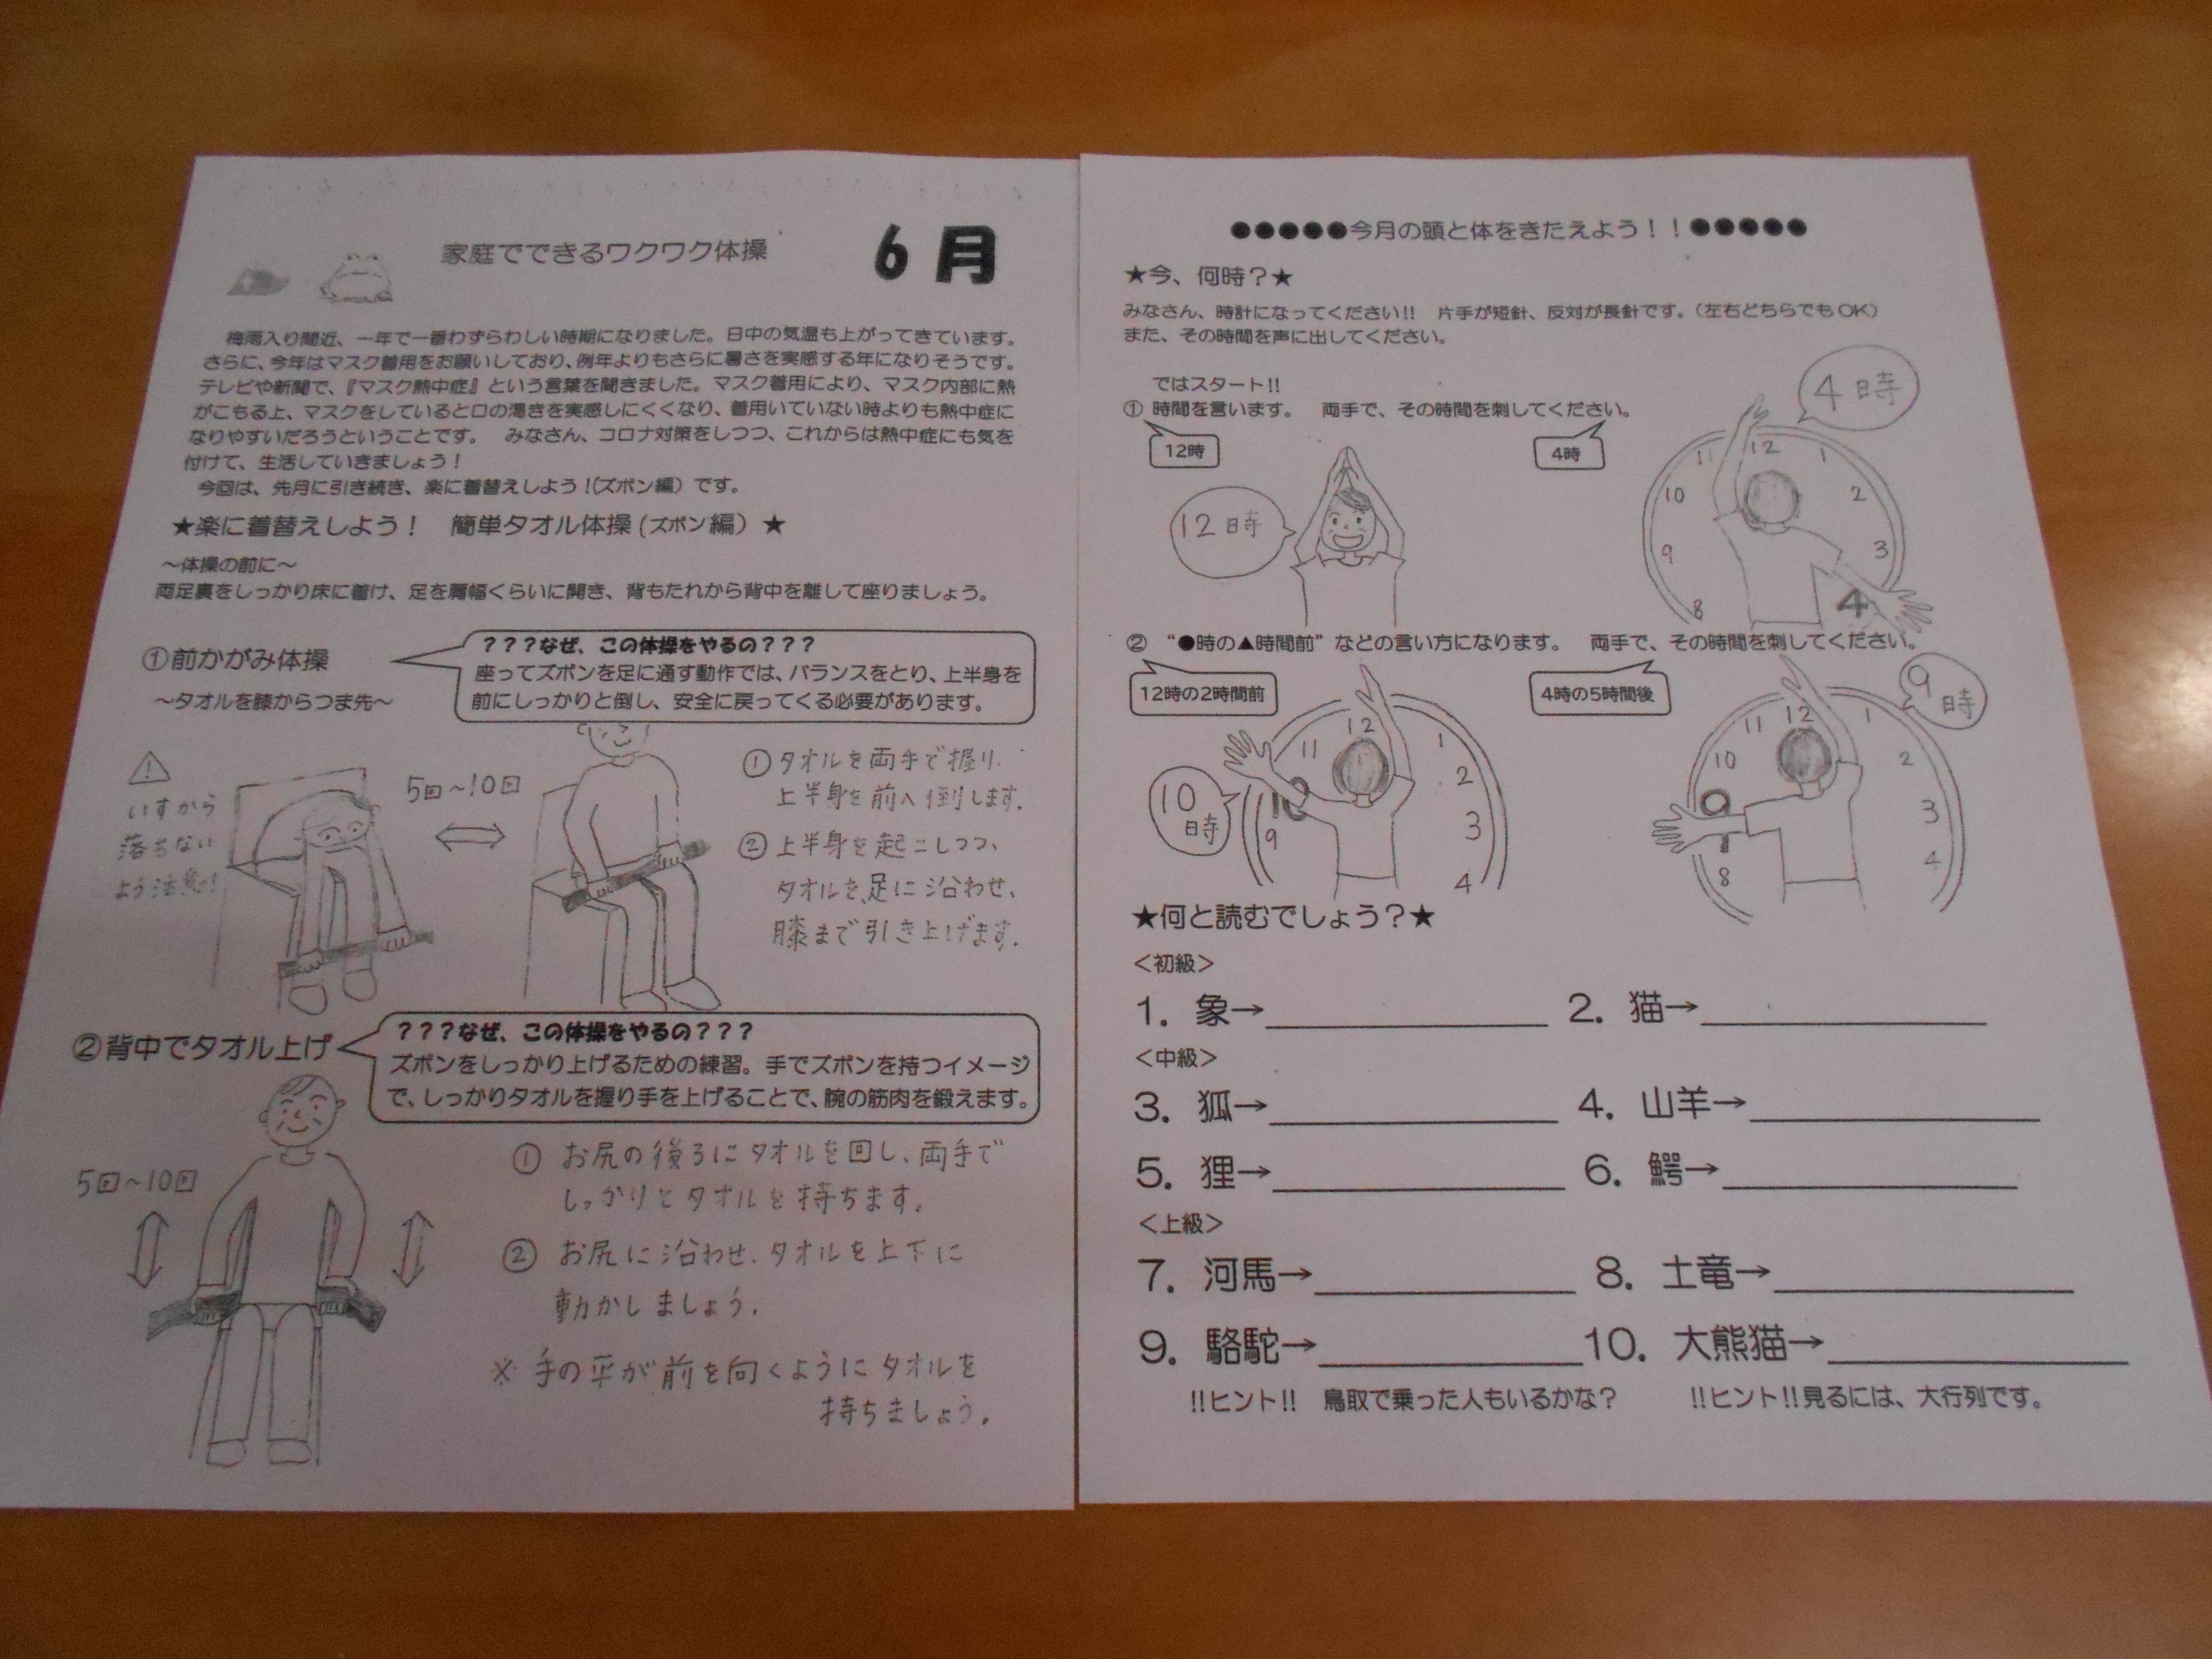 家庭でできるワクワク体操
6月
梅雨入り間近、一年で一番わずらわしい時期になりました。日中の気温も上がってきています。
さらに、今年はマスク着用をお願いしており、例年よりもさらに暑さを実感する年になりそうです。
テレビや新聞で、『マスク熱中症』という言葉を聞きました。マスク着用により、マスク内部に熱
がこもる上、マスクをしていると口の渇きを実感しにくくなり、着用いていない時よりも熱中症に
なりやすいだろうということです。 みなさん、コロナ対策をしつつ、これからは熱中症にも気を
付けて、生活していきましょう！
今回は、先月に引き続き、楽に着替えしよう！(ズボン編）です。
★楽に着替えしよう！ 簡単タオル体操(ズボン編）★
～体操の前に～
両足裏をしっかり床に着け、足を肩幅くらいに開き、背もたれから背中を離して座りましょう。
①前かがみ体操
～タオルを膝からつま先～
？？？なぜ、この体操をやるの？？？
座ってズボンを足に通す動作では、バランスをとり、上半身を
前にしっかりと倒し、安全に戻ってくる必要があります。
!
いすから
落ちない
よう注意!
5回～10回
①タオルを両手で握り、
上半身を前へ倒します.
②上半身を起こしつつ、
タオルを足に沿わせ、
膝まで引き上げます.
②背中でタオル上げ
？？？なぜ、この体操をやるの？？？
ズボンをしっかり上げるための練習。手でズボンを持つイメージ
で、しっかりタオルを握り手を上げることで、腕の筋肉を鍛えます。
5回～10回
① お尻の後ろにタオルを回し、両手で
しっかりとタオルを持ちます.
② お尻に沿わせ、タオルを上下に
動かしましょう.
※手の平が前を向くようにタオルを
持ちましょう.
●●●●●今月の頭と体をきたえよう！！●●●●●
★今、何時？★
みなさん、時計になってください!! 片手が短針、反対が長針です。（左右どちらでもOK）
また、その時間を声に出してください。
ではスタート!!
① 時間を言います。 両手で、その時間を刺してください。
12時
4時
12時
4時
11 12 1
10 2
9 3
8 4
② “●時の▲時間前”などの言い方になります。 両手で、その時間を刺してください。
12時の2時間前
4時の5時間後
10時
9時
11 12 1
10 2
9 3
4
11 12 1
10 2
9 3
8 4
★何と読むでしょう？★
＜初級＞
1．象→
2．猫→
＜中級＞
3．狐→
4．山羊→
5．狸→
6．鰐→
＜上級＞
7．河馬→
8．土竜→
9．駱駝→
10．大熊猫→
!!ヒント!! 鳥取で乗った人もいるかな？
!!ヒント!!見るには、大行列です。